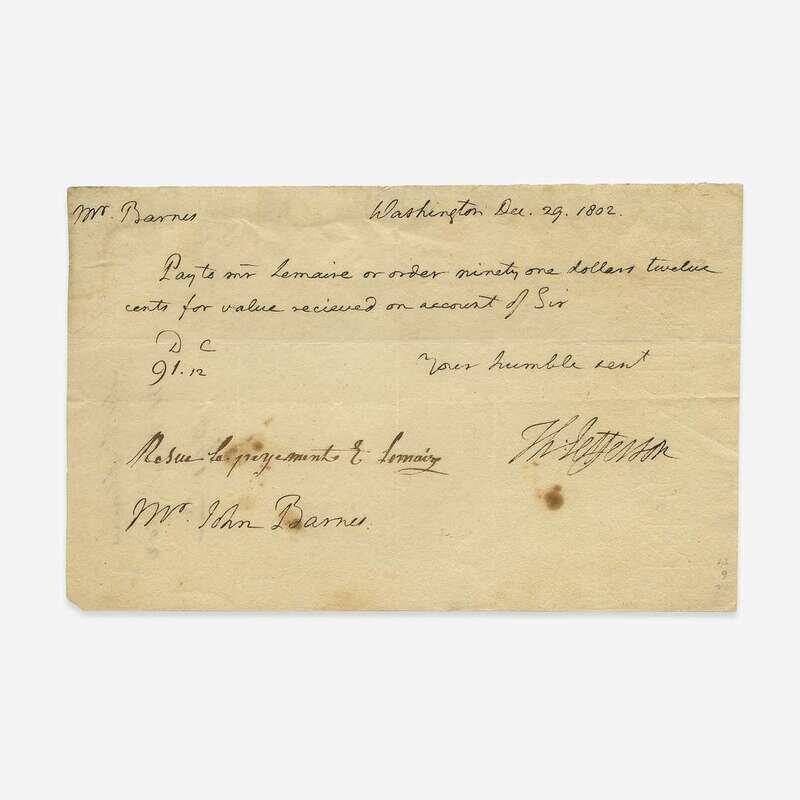 Mr. Barnes
Washington Dec. 29. 1802.
Pay to mr Lemaire or order ninety one dollars twelve
cents for value recieved on account of Sir
D C
91.12
Your humble servt
Th: Jefferson
Resue le payement E Lemaire
Mr. John Barnes.